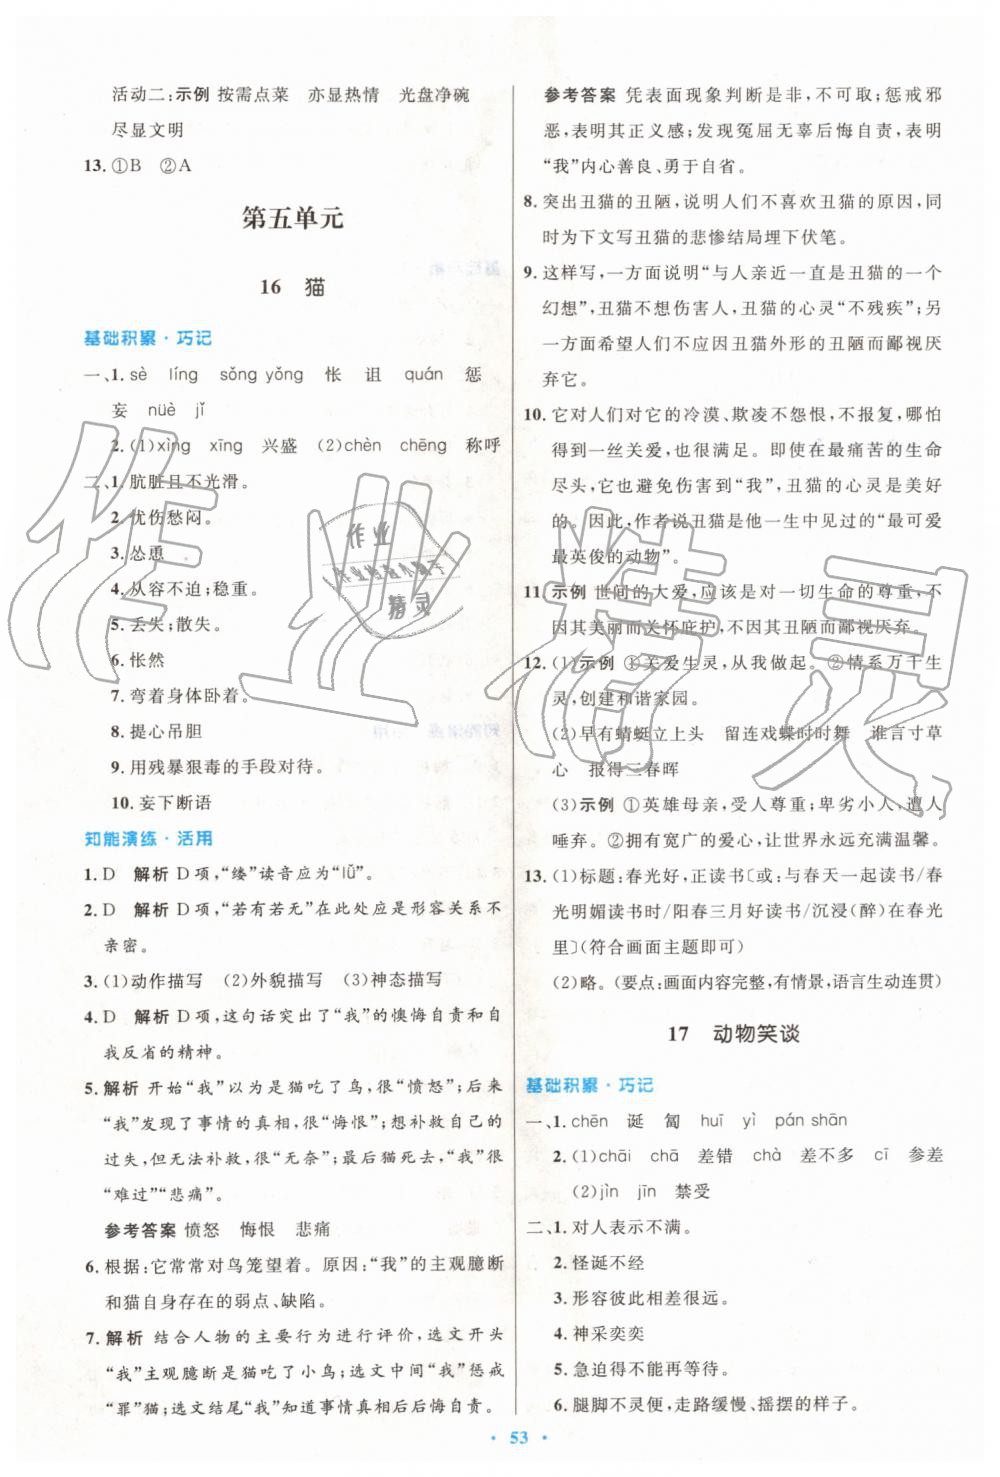 活动二:示例 按需点菜 亦显热情 光盘净碗
尽显文明
13.①B ②A
第五单元
16 猫
基础积累·巧记
一、1.sè líng sǒng yǒng 怅 诅 quán 惩
妄 nüè jǐ
2.(1)xìng xīng 兴盛 (2)chèn chēng 称呼
二、1.肮脏且不光滑。
2.忧伤愁闷。
3.怂恿
4.从容不迫;稳重。
5.丢失;散失。
6.怅然
7.弯着身体卧着。
8.提心吊胆
9.用残暴狠毒的手段对待。
10.妄下断语
知能演练·活用
1.D 解析 D项,“缕”读音应为“lǚ”。
2.D 解析 D项,“若有若无”在此处应是形容关系不
亲密。
3.(1)动作描写 (2)外貌描写 (3)神态描写
4.D 解析 D项,这句话突出了“我”的懊悔自责和自
我反省的精神。
5.解析 开始“我”以为是猫吃了鸟,很“愤怒”;后来
“我”发现了事情的真相,很“悔恨”;想补救自己的
过失,但无法补救,很“无奈”;最后猫死去,“我”很
“难过”“悲痛”。
参考答案 愤怒 悔恨 悲痛
6.根据:它常常对鸟笼望着。原因:“我”的主观臆断
和猫自身存在的弱点、缺陷。
7.解析 结合人物的主要行为进行评价,选文开头
“我”主观臆断是猫吃了小鸟;选文中间“我”惩戒
“罪”猫;选文结尾“我”知道事情真相后后悔自责。
参考答案 凭表面现象判断是非,不可取;惩戒邪
恶,表明其正义感;发现冤屈无辜后悔自责,表明
“我”内心善良、勇于自省。
8.突出丑猫的丑陋,说明人们不喜欢丑猫的原因,同
时为下文写丑猫的悲惨结局埋下伏笔。
9.这样写,一方面说明“与人亲近一直是丑猫的一个
幻想”,丑猫不想伤害人,丑猫的心灵“不残疾”;另
一方面希望人们不应因丑猫外形的丑陋而鄙视厌
弃它。
10.它对人们对它的冷漠、欺凌不怨恨,不报复,哪怕
得到一丝关爱,也很满足。即使在最痛苦的生命
尽头,它也避免伤害到“我”,丑猫的心灵是美好
的。因此,作者说丑猫是他一生中见过的“最可爱
最英俊的动物”。
11.示例 世间的大爱,应该是对一切生命的尊重,不
因其美丽而关怀庇护,不因其丑陋而鄙视厌弃。
12.(1)示例 ①关爱生灵,从我做起。②情系万千生
灵,创建和谐家园。
(2)早有蜻蜓立上头 留连戏蝶时时舞 谁言寸草
心 报得三春晖
(3)示例 ①英雄母亲,受人尊重;卑劣小人,遭人
唾弃。②拥有宽广的爱心,让世界永远充满温馨。
13.(1)标题:春光好,正读书〔或:与春天一起读书/春
光明媚读书时/阳春三月好读书/沉浸(醉)在春光
里〕(符合画面主题即可)
(2)略。(要点:画面内容完整,有情景,语言生动连贯)
17 动物笑谈
基础积累·巧记
一、1.chēn 诞 匐 huī yì pán shān
2.(1)chāi chā 差错 chà 差不多 cī 参差
(2)jìn jīn 禁受
二、1.对人表示不满。
2.怪诞不经
3.形容彼此相差很远。
4.神采奕奕
5.急迫得不能再等待。
6.腿脚不灵便,走路缓慢、摇摆的样子。
53
作业精灵
作业
作业检查小助手
精灵